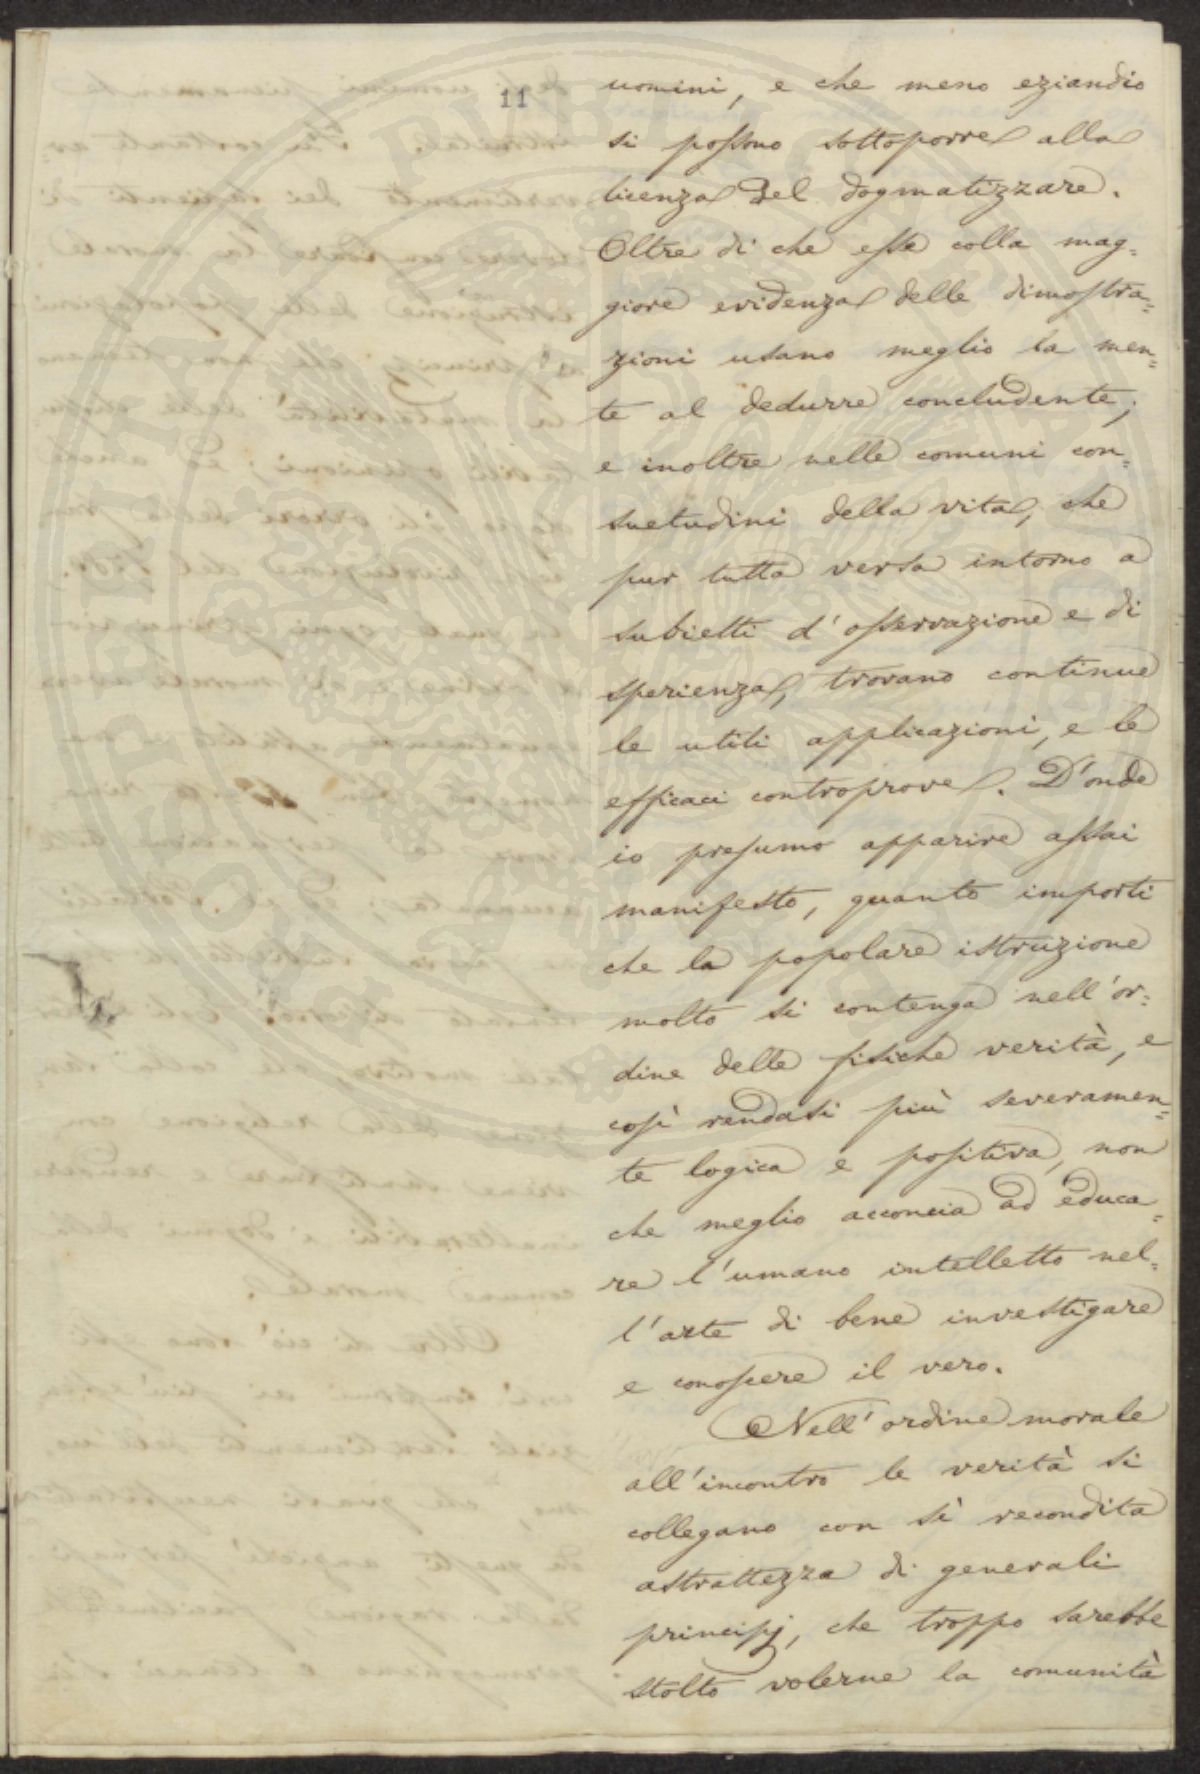 11
uomini, e che meno eziandio
si possono sottoporre alla
licenza del dogmatizzare.
Oltre di che esse colla mag=
giore evidenza delle dimostra=
zioni usano meglio la men=
te al dedurre concludente;
e inoltre nelle comuni con=
suetudini della vita, che
pur tutta versa intorno a
subietti d'osservazione e di
sperienza, trovano continue
le utili applicazioni, e le
efficaci controprove. D'onde
io presumo apparire assai
manifesto, quanto importi
che la popolare istruzione
molto si contenga nell'or=
dine delle fisiche verità, e
così rendasi più severamen=
te logica e positiva, non
che meglio acconcia ad educa=
re l'umano intelletto nel=
l'arte di bene investigare
e conoscere il vero.
Nell'ordine morale
all'incontro le verità si
collegano con sì recondita
astrattezza di generali
principj, che troppo sarebbe
stolto volerne la comunità